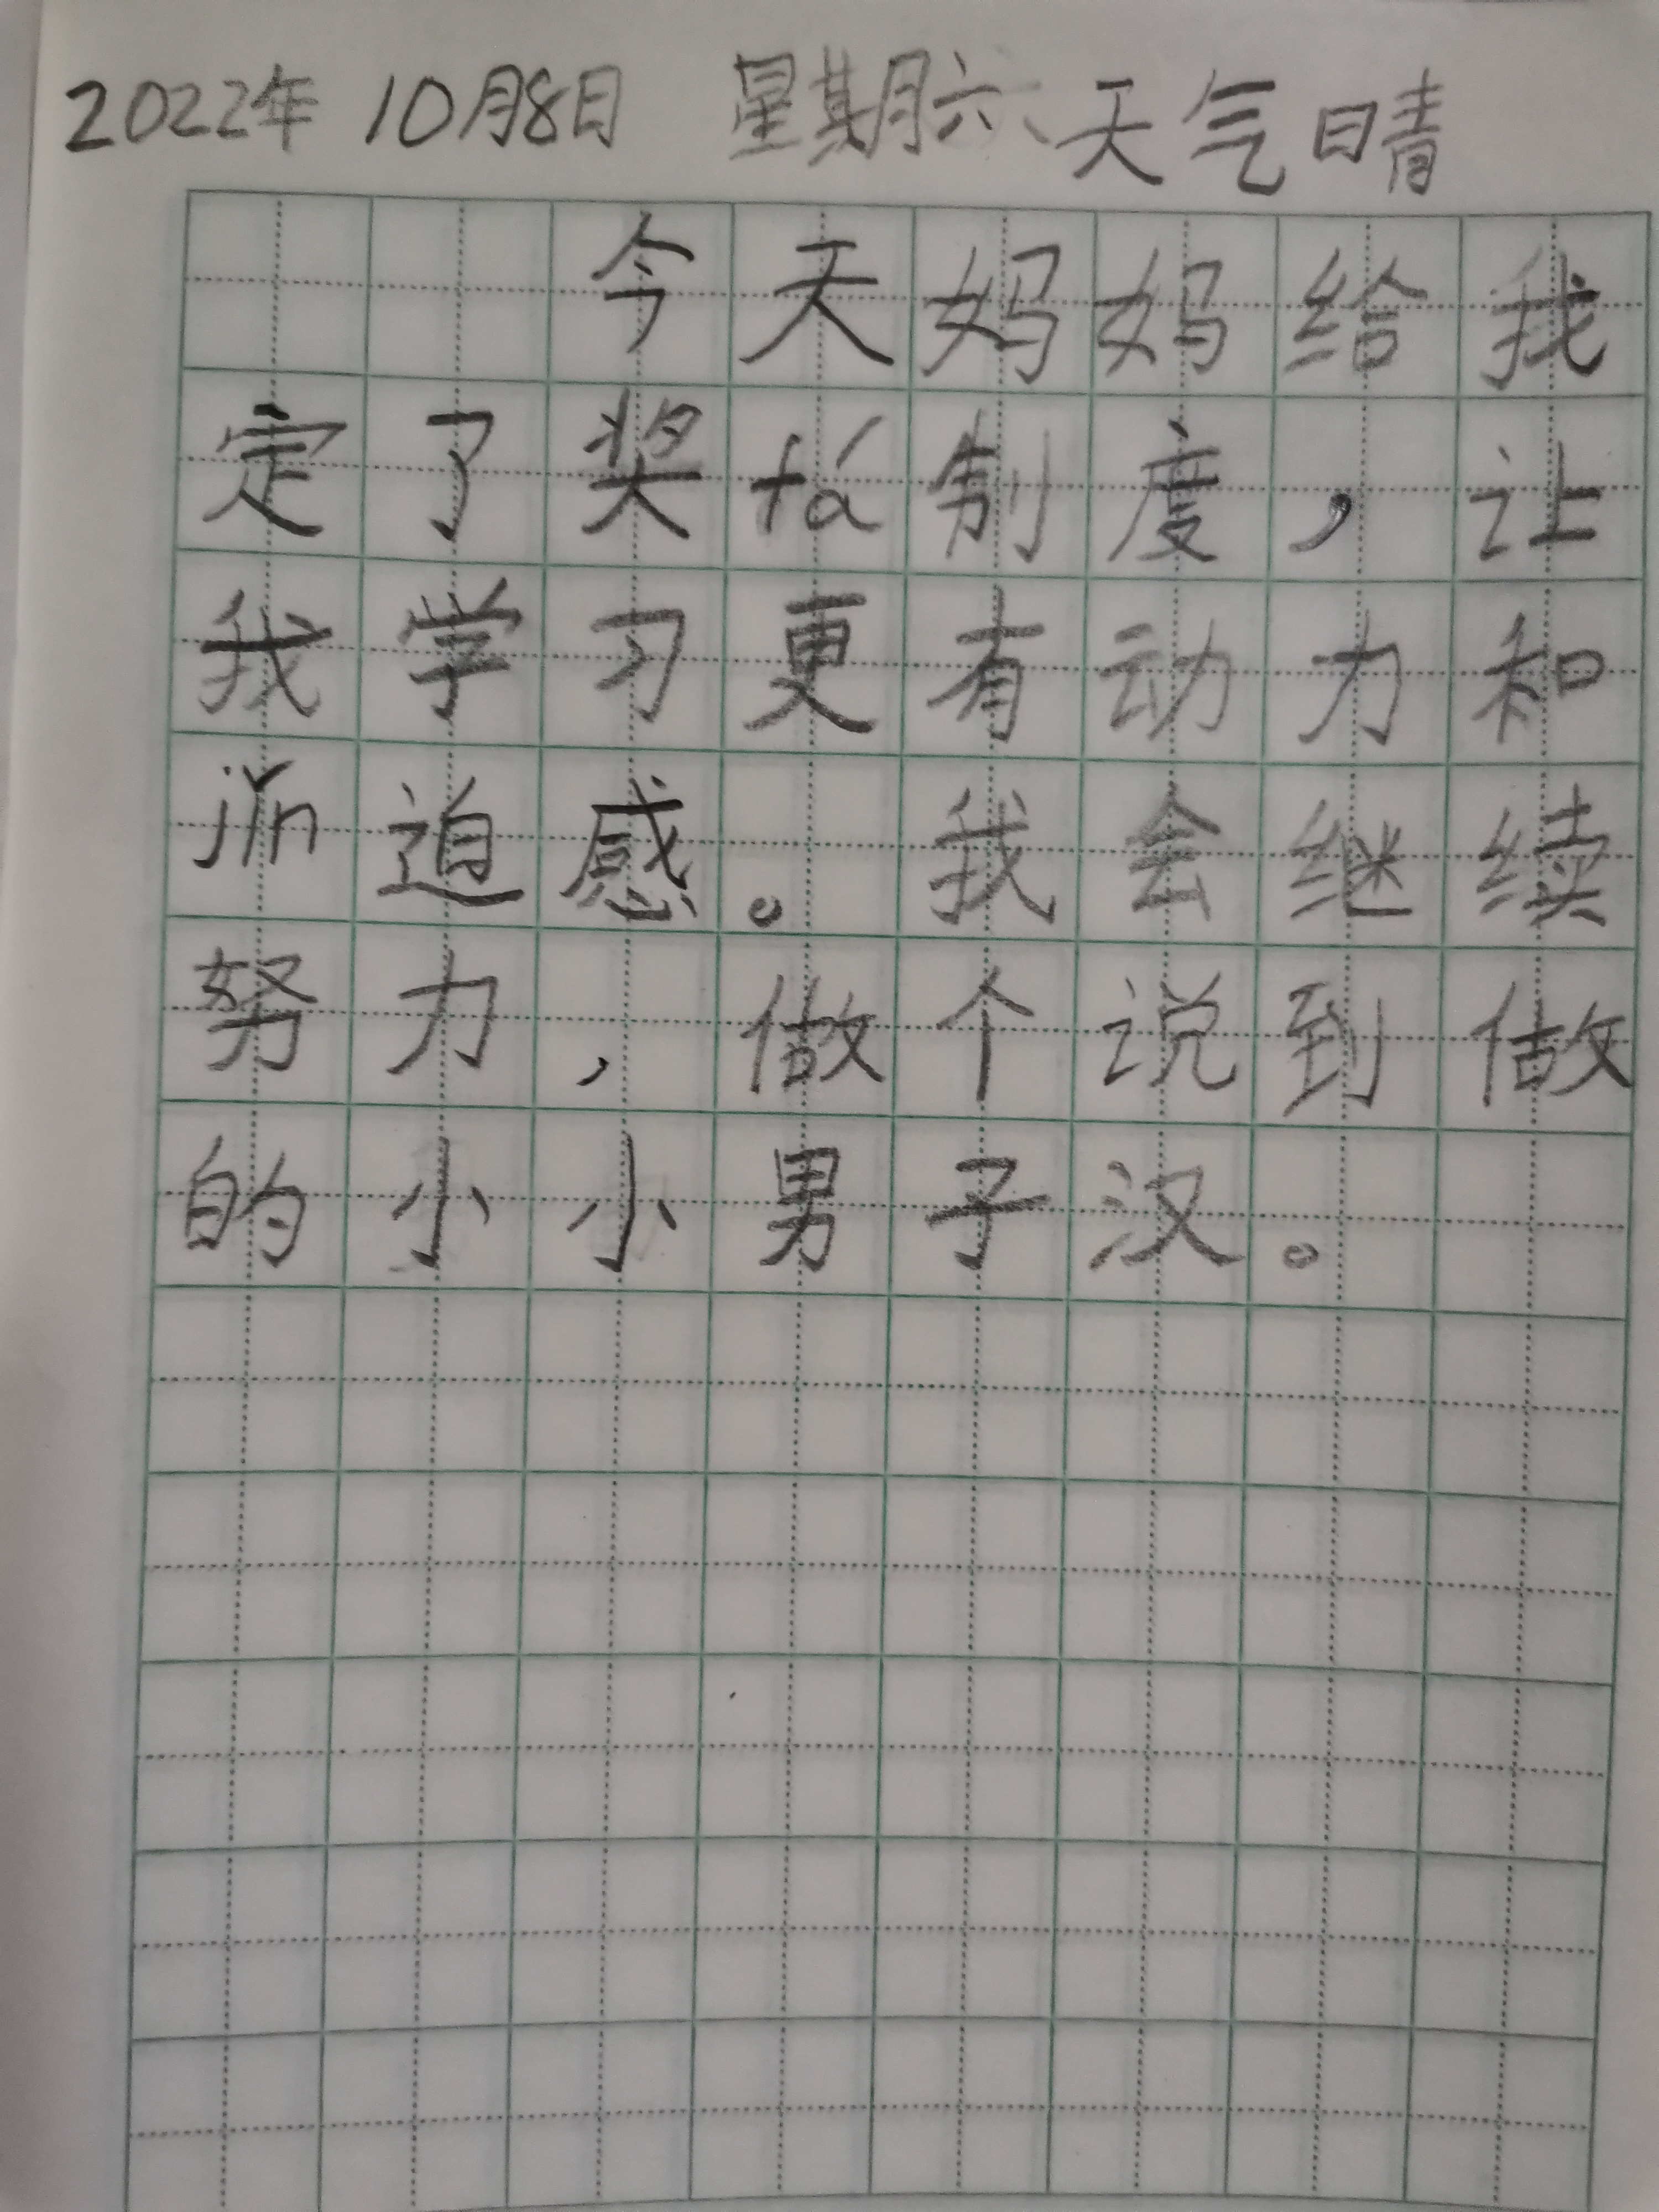 2022年 10月8日 星期六 天气晴
今天妈妈给我
定了奖fá制度，让
我学习更有动力和
jǐn迫感。我会继续
努力，做个说到做
的小小男子汉。